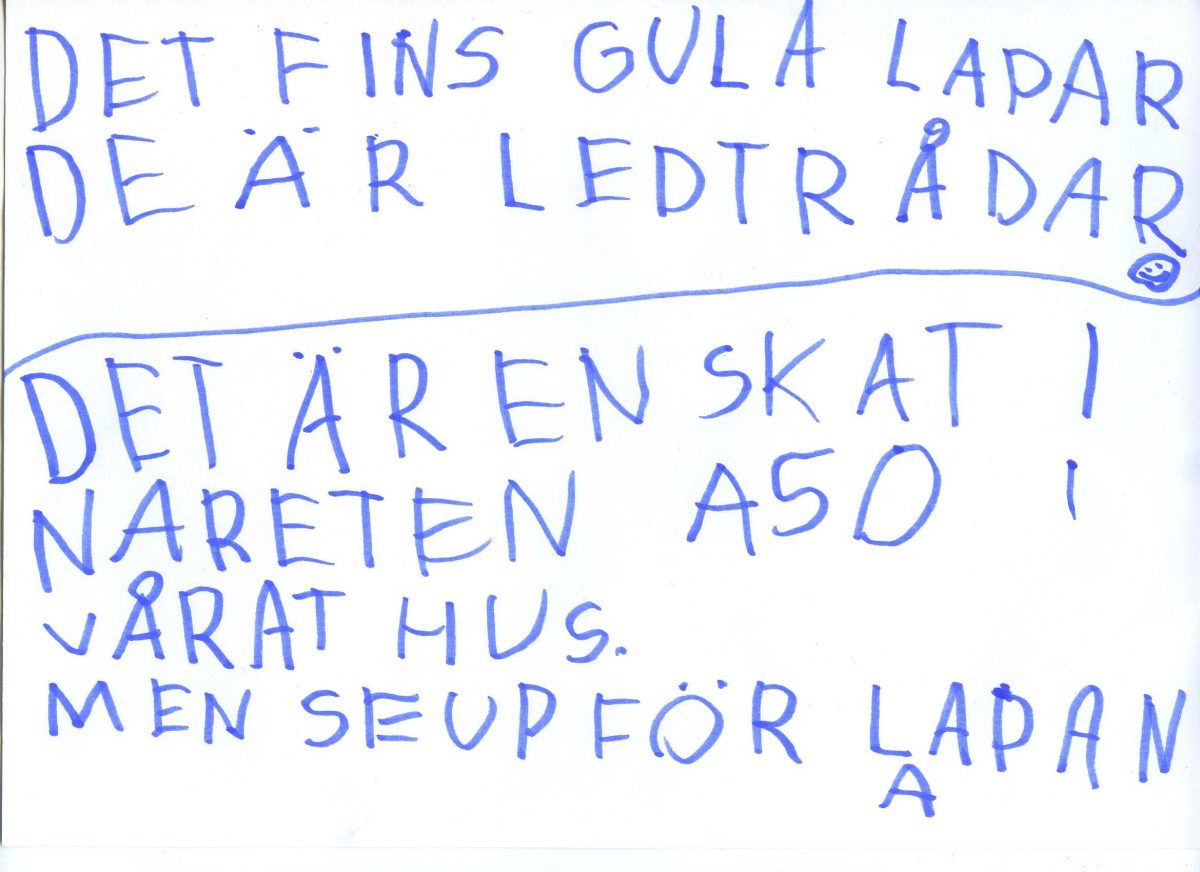 DET FINS GULA LAPAR
DE ÄR LEDTRÅDAR
DET ÄR EN SKAT I
NARETEN ASO I
VÅRAT HUS.
MEN SE UP FÖR LAPAN
A